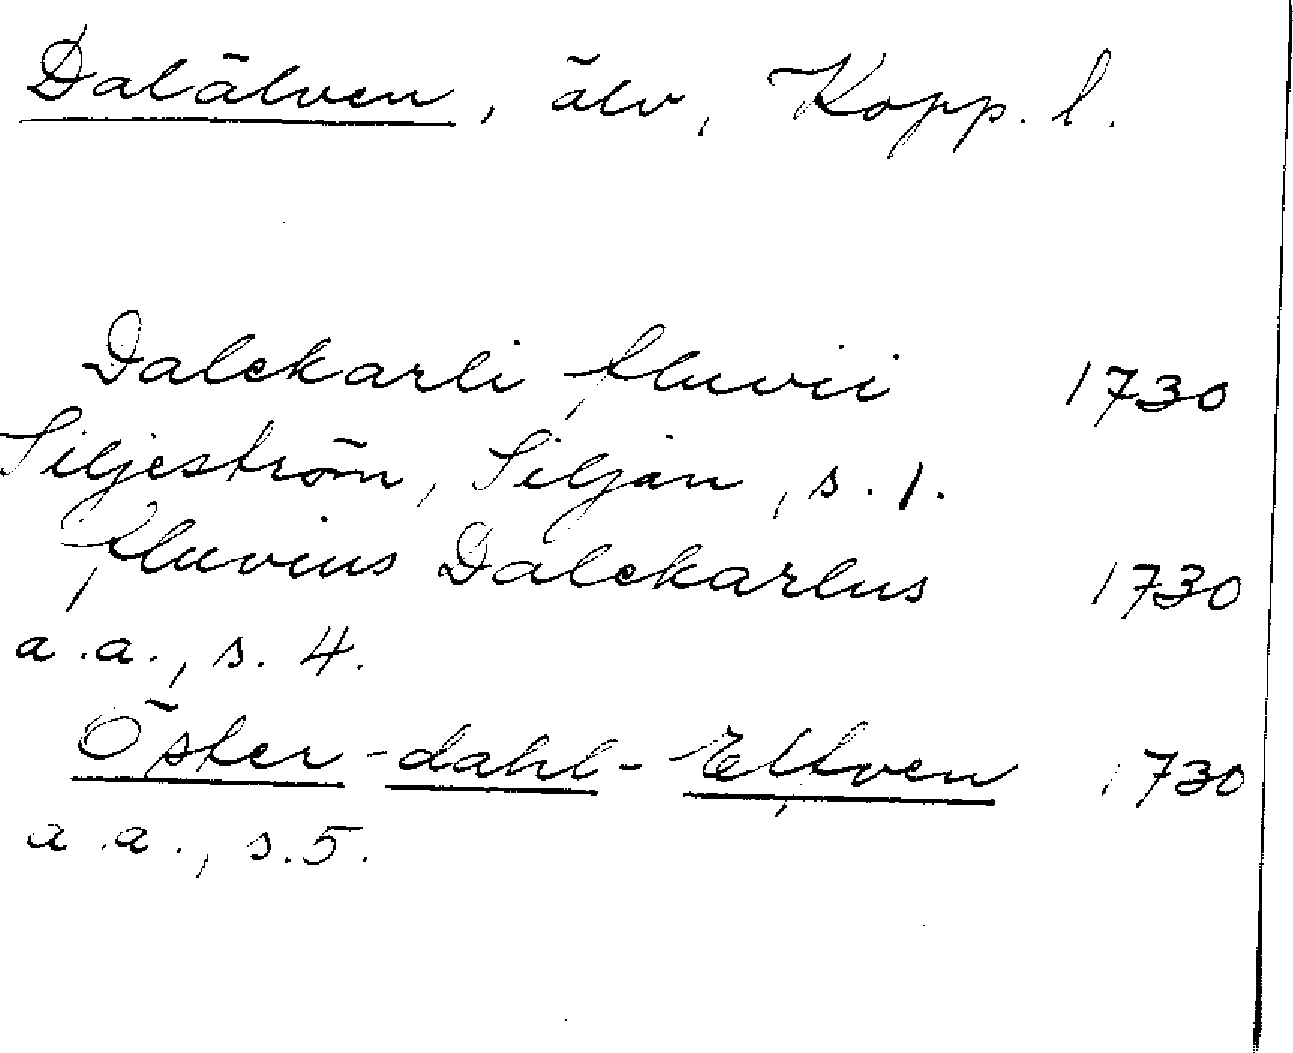 Dalälven, älv, Kopp. l.
Dalekarli fluvii 1730
Siljeström, Siljan, s. 1.
fluvius Dalekarlus 1730
a.a., s. 4.
Öster-dahl-Elfven 1730
a.a., s. 5.